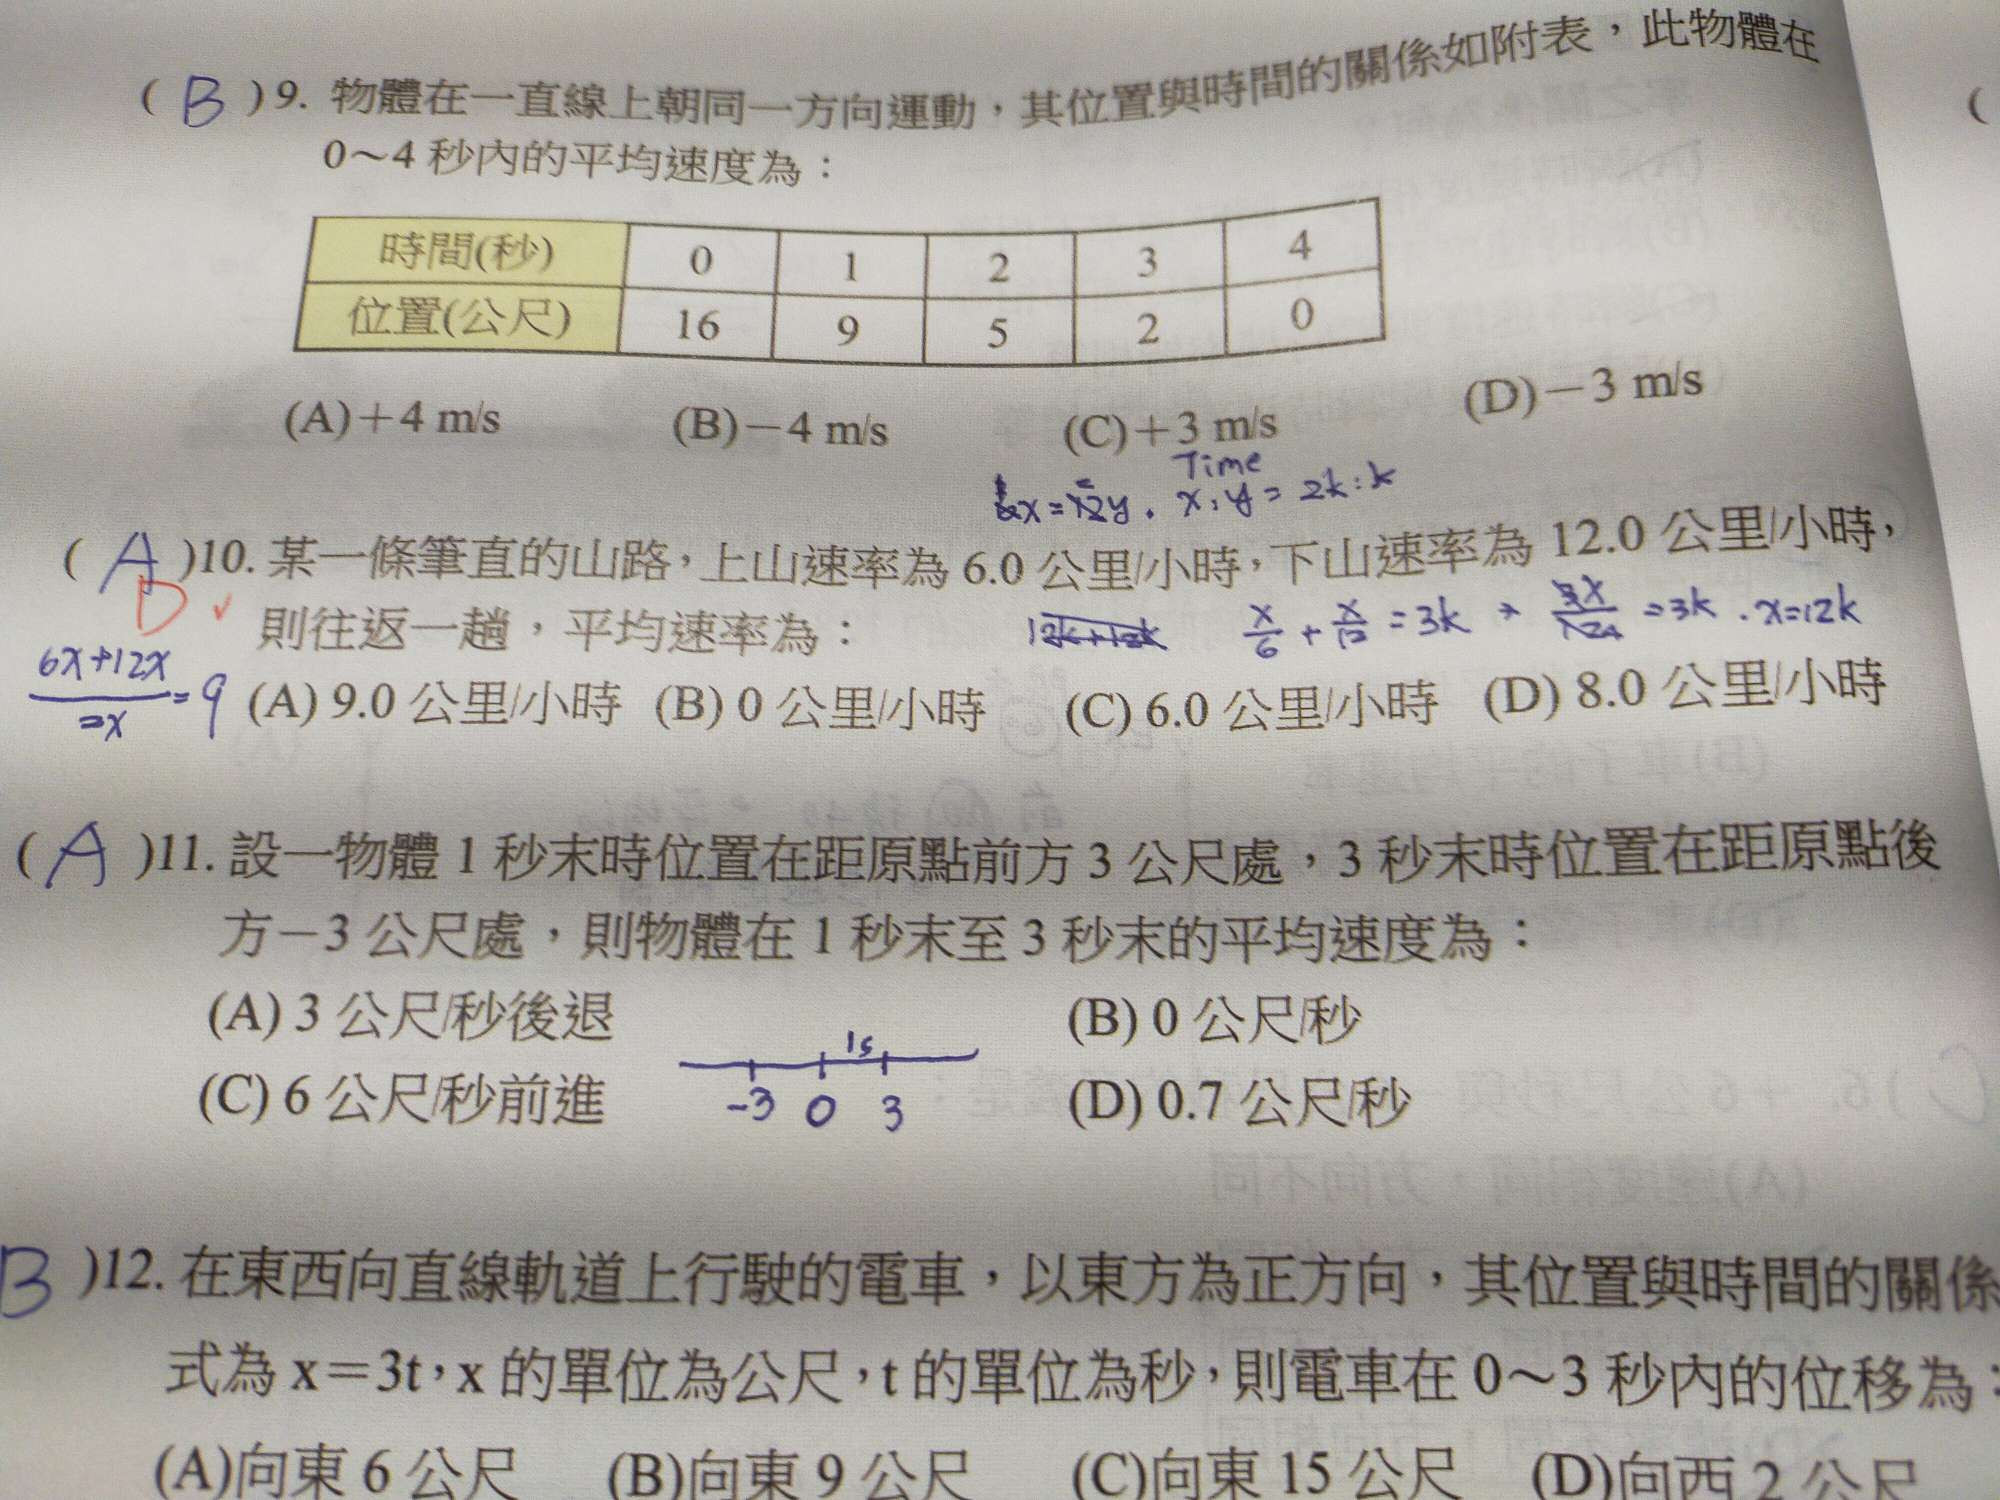 ( B ) 9. 物體在一直線上朝同一方向運動，其位置與時間的關係如附表，此物體在
0～4 秒內的平均速度為：
時間(秒) 0 1 2 3 4
位置(公尺) 16 9 5 2 0
(A)＋4 m/s (B)－4 m/s (C)＋3 m/s (D)－3 m/s
Time
x:y = 2k:k
( A )10. 某一條筆直的山路，上山速率為 6.0 公里/小時，下山速率為 12.0 公里/小時，
D ✓ 則往返一趟，平均速率為：
x/6 + x/12 = 3k → = 3k . x=12k
6x+12x/=x = 9
(A) 9.0 公里/小時 (B) 0 公里/小時 (C) 6.0 公里/小時 (D) 8.0 公里/小時
( A )11. 設一物體 1 秒末時位置在距原點前方 3 公尺處，3 秒末時位置在距原點後
方－3 公尺處，則物體在 1 秒末至 3 秒末的平均速度為：
(A) 3 公尺/秒後退 (B) 0 公尺/秒
1s
(C) 6 公尺/秒前進 -3 0 3 (D) 0.7 公尺/秒
B )12. 在東西向直線軌道上行駛的電車，以東方為正方向，其位置與時間的關係
式為 x＝3t，x 的單位為公尺，t 的單位為秒，則電車在 0～3 秒內的位移為：
(A)向東 6 公尺 (B)向東 9 公尺 (C)向東 15 公尺 (D)向西 2 公尺